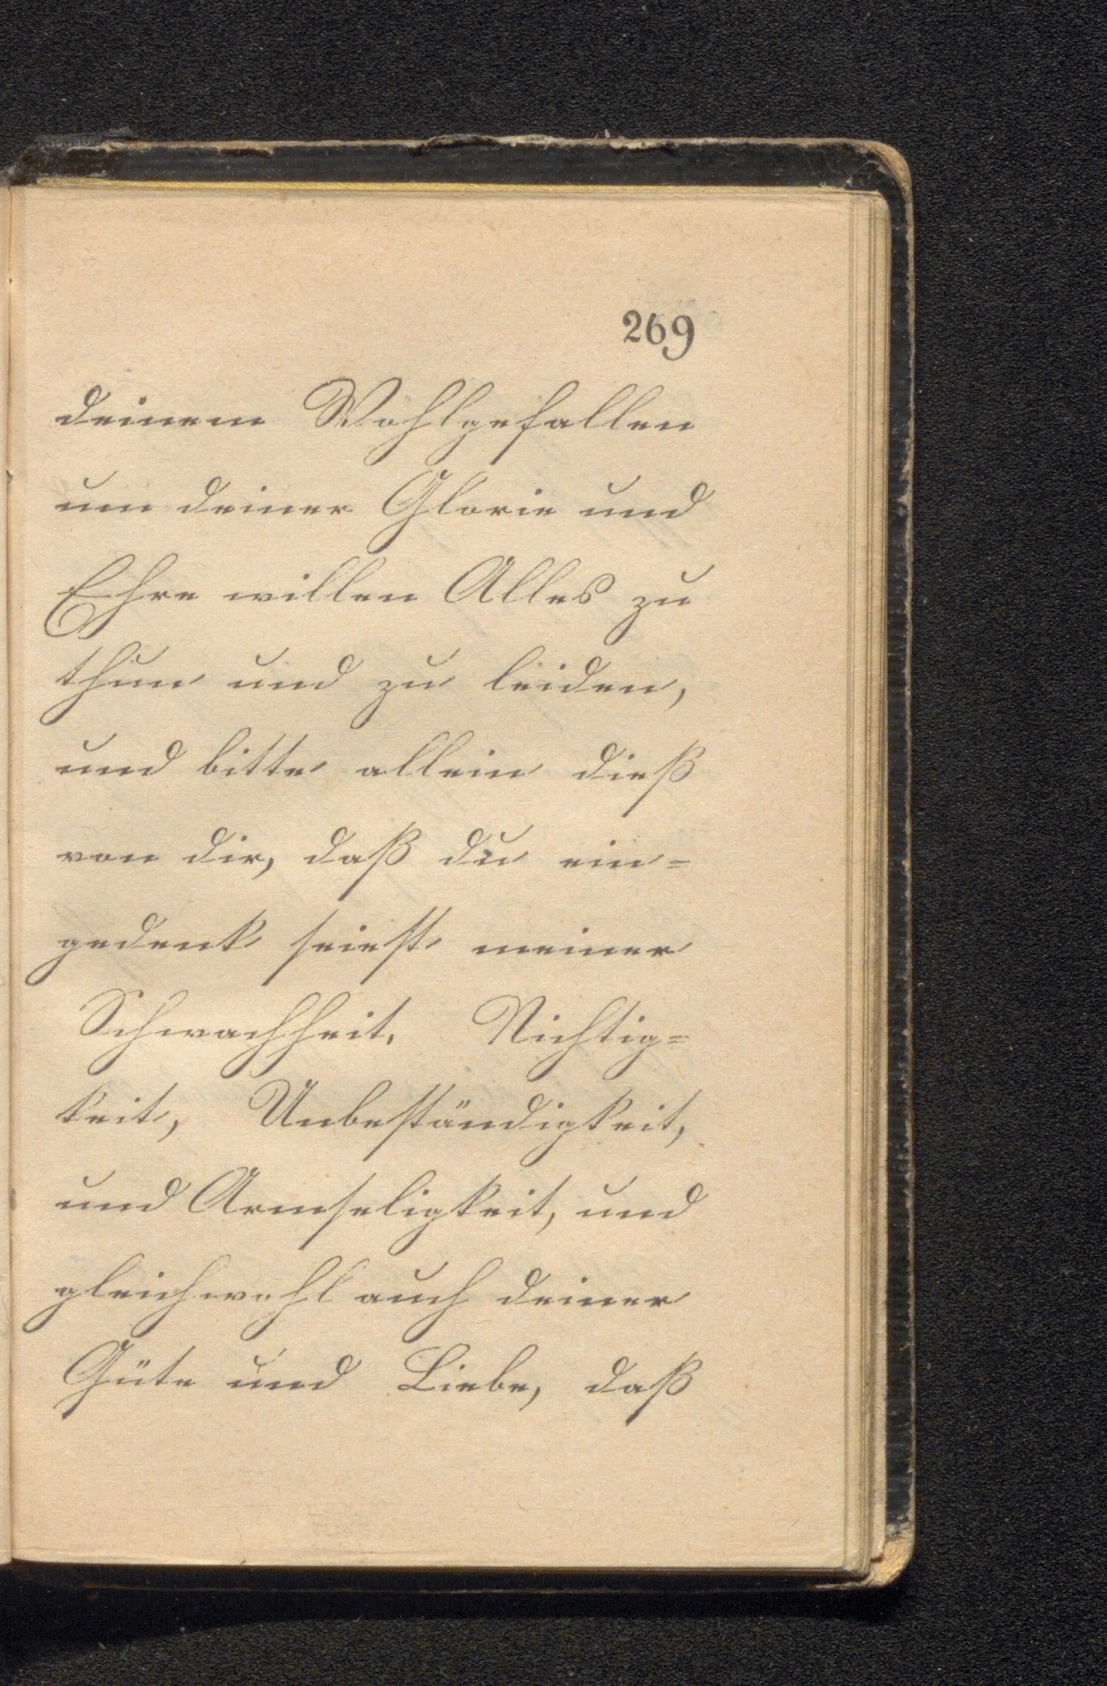 269
deinem Wohlgefallen
um deiner Glorie und
Ehre willen Alles zu
thun und zu leiden,
und bitte allein dieß
von dir, daß du ein=
gedenk seiest meiner
Schwachheit, Nichtig=
keit, Unbeständigkeit,
und Armseligkeit, und
gleichwohl auch deiner
Güte und Liebe, daß